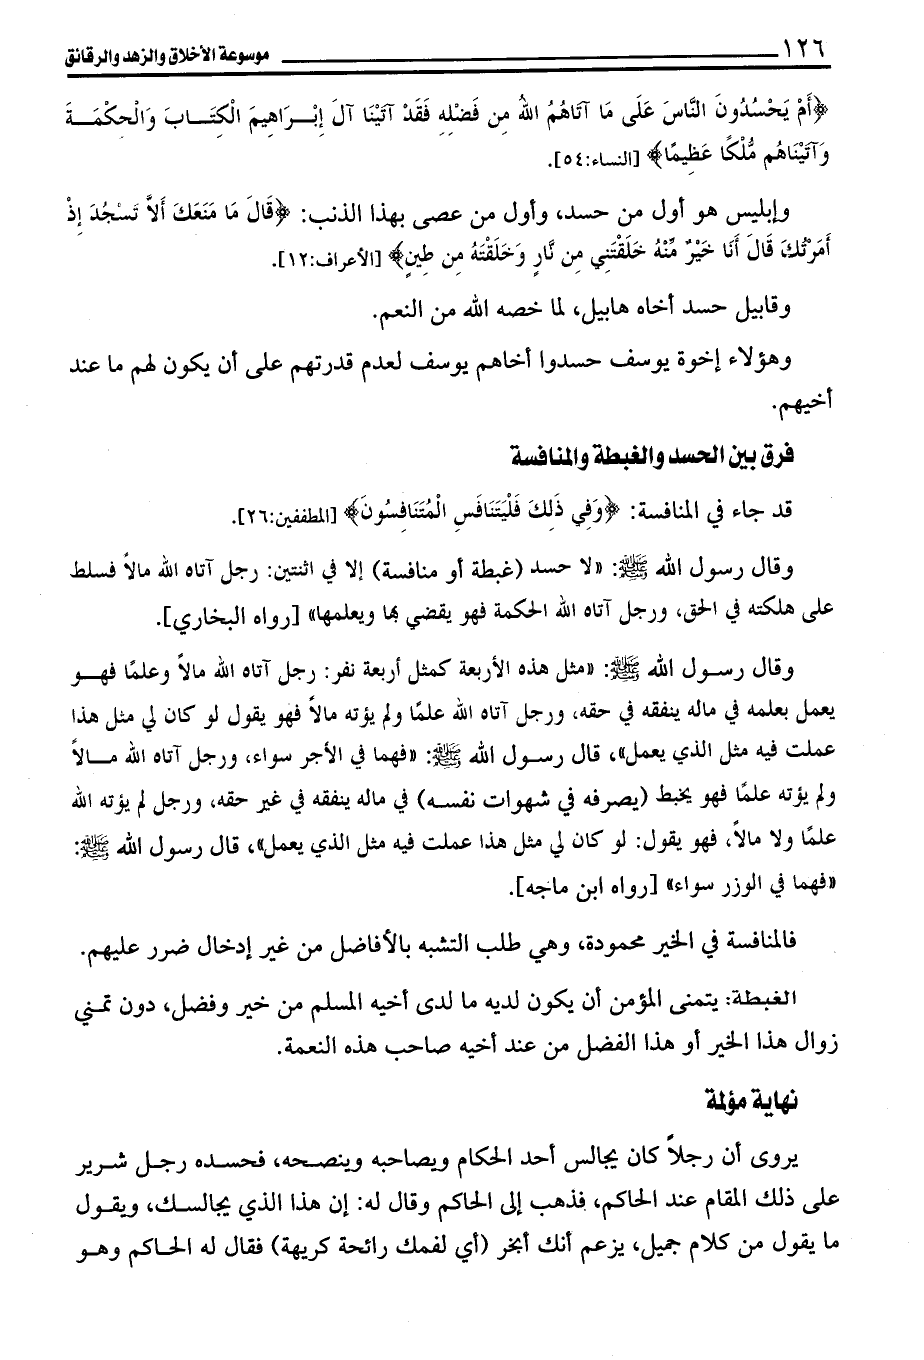 ١٢٦ موسوعة الأخلاق والزهد والرقائق
﴿أَمْ يَحْسُدُونَ النَّاسَ عَلَى مَا آتَاهُمُ اللهُ مِن فَضْلِهِ فَقَدْ آتَيْنَا آلَ إِبْرَاهِيمَ الْكِتَابَ وَالْحِكْمَةَ
وَآتَيْنَاهُم مُّلْكًا عَظِيمًا﴾ [النساء:٥٤].
وإبليس هو أول من حسد، وأول من عصى بهذا الذنب: ﴿قَالَ مَا مَنَعَكَ أَلاَّ تَسْجُدَ إِذْ
أَمَرْتُكَ قَالَ أَنَا خَيْرٌ مِّنْهُ خَلَقْتَنِي مِن نَّارٍ وَخَلَقْتَهُ مِن طِينٍ﴾ [الأعراف:١٢].
وقابيل حسد أخاه هابيل، لما خصه الله من النعم.
وهؤلاء إخوة يوسف حسدوا أخاهم يوسف لعدم قدرتهم على أن يكون لهم ما عند
أخيهم.
فرق بين الحسد والغبطة والمنافسة
قد جاء في المنافسة: ﴿وَفِي ذَلِكَ فَلْيَتَنَافَسِ الْمُتَنَافِسُونَ﴾ [المطففين:٢٦].
وقال رسول الله ﷺ: «لا حسد (غبطة أو منافسة) إلا في اثنتين: رجل آتاه الله مالاً فسلط
على هلكته في الحق، ورجل آتاه الله الحكمة فهو يقضي بها ويعلمها» [رواه البخاري].
وقال رسول الله ﷺ: «مثل هذه الأربعة كمثل أربعة نفر: رجل آتاه الله مالاً وعلمًا فهو
يعمل بعلمه في ماله ينفقه في حقه، ورجل آتاه الله علمًا ولم يؤته مالاً فهو يقول لو كان لي مثل هذا
عملت فيه مثل الذي يعمل»، قال رسول الله ﷺ: «فهما في الأجر سواء، ورجل آتاه الله مالاً
ولم يؤته علمًا فهو يخبط (يصرفه في شهوات نفسه) في ماله ينفقه في غير حقه، ورجل لم يؤته الله
علمًا ولا مالاً، فهو يقول: لو كان لي مثل هذا عملت فيه مثل الذي يعمل»، قال رسول الله ﷺ:
«فهما في الوزر سواء» [رواه ابن ماجه].
فالمنافسة في الخير محمودة، وهي طلب التشبه بالأفاضل من غير إدخال ضرر عليهم.
الغبطة: يتمنى المؤمن أن يكون لديه ما لدى أخيه المسلم من خير وفضل، دون تمني
زوال هذا الخير أو هذا الفضل من عند أخيه صاحب هذه النعمة.
نهاية مؤلمة
يروى أن رجلاً كان يجالس أحد الحكام ويصاحبه وينصحه، فحسده رجل شرير
على ذلك المقام عند الحاكم، فذهب إلى الحاكم وقال له: إن هذا الذي يجالسك، ويقول
ما يقول من كلام جميل، يزعم أنك أبخر (أي لفمك رائحة كريهة) فقال له الحاكم وهو